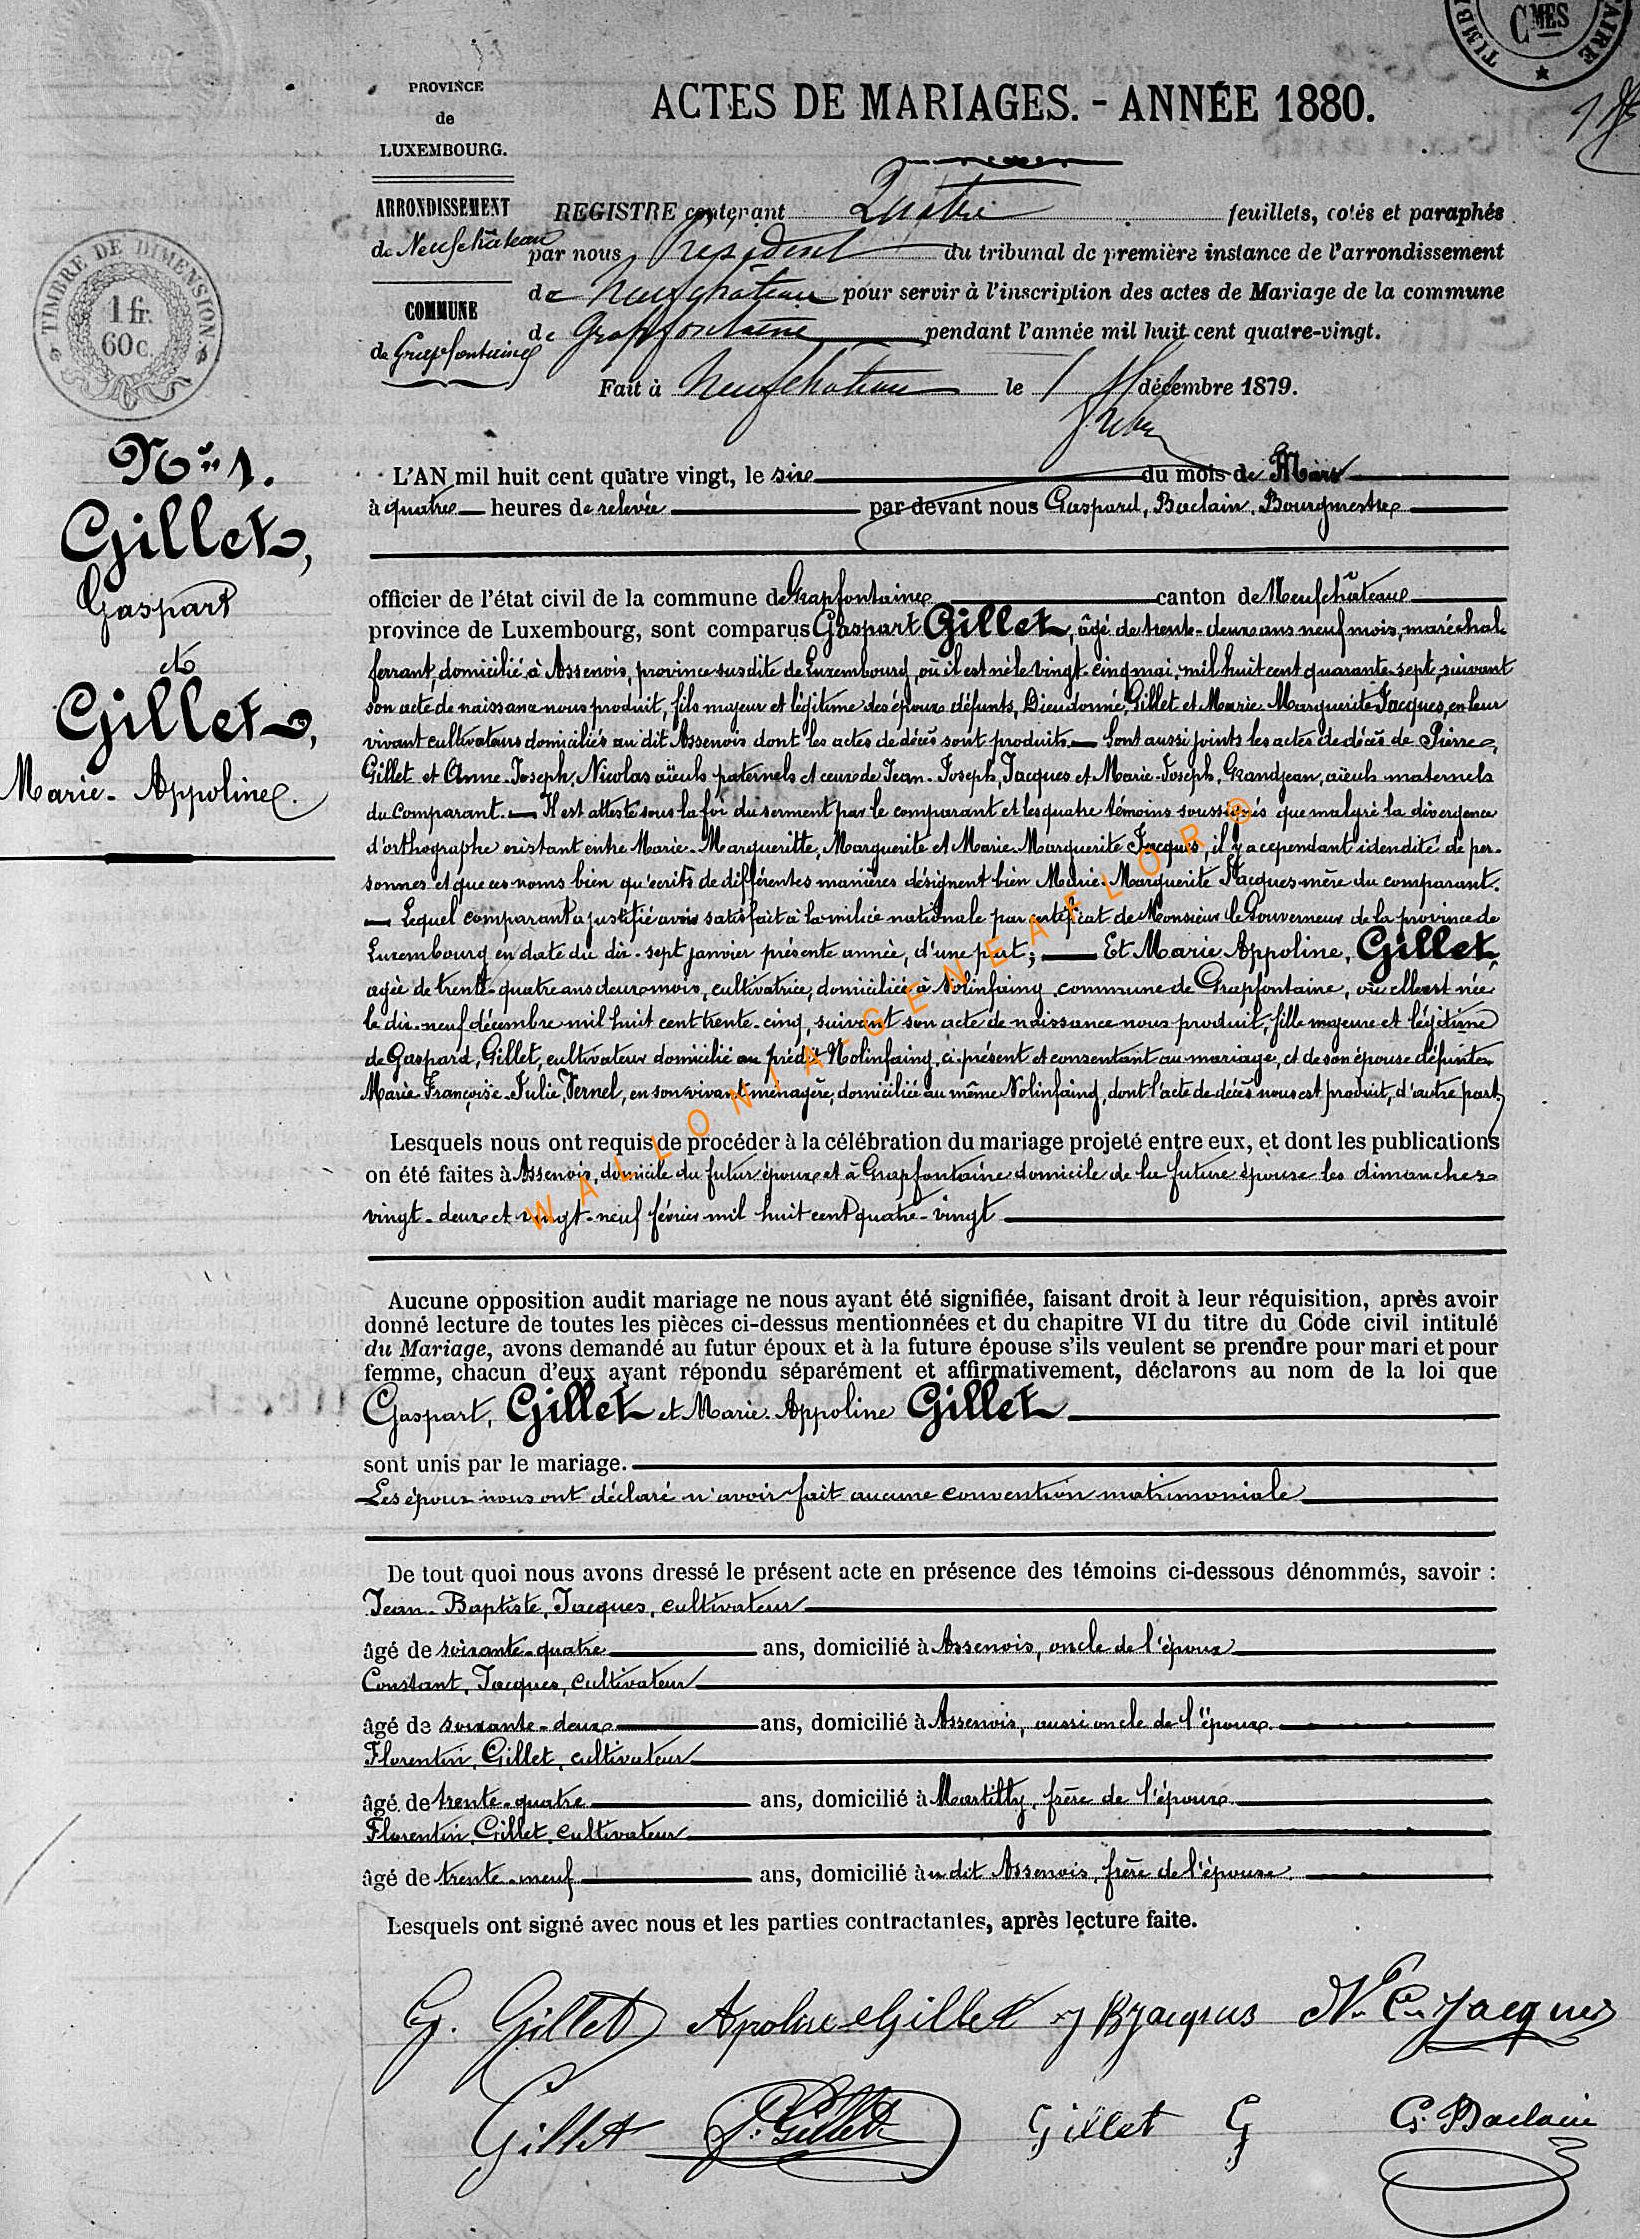 PROVINCE
de
LUXEMBOURG.
ARRONDISSEMENT
de Neufchâteau
COMMUNE
de Grapfontaine
TIMBRE DE DIMENSION
1 fr.
60 c.
CMES
ACTES DE MARIAGES. - ANNÉE 1880.
REGISTRE contenant Quatre feuillets, cotés et paraphés
par nous Président du tribunal de première instance de l'arrondissement
de Neufchâteau pour servir à l'inscription des actes de Mariage de la commune
de Grapfontaine pendant l'année mil huit cent quatre-vingt.
Fait à Neufchâteau le décembre 1879.
No 1.
Gillet,
Gaspart
et
Gillet,
Marie-Appoline.
L'AN mil huit cent quatre vingt, le six du mois de Mars
à quatre heures de relevée par devant nous Gaspard, Baclain, Bourgmestre
officier de l'état civil de la commune de Grapfontaine canton de Neufchâteau
province de Luxembourg, sont comparus Gaspart Gillet, âgé de trente-deux ans neuf mois, maréchal
ferrant, domicilié à Assenois, province susdite de Luxembourg, où il est né le vingt-cinq mai, mil huit cent quarante-sept, suivant
son acte de naissance nous produit, fils majeur et légitime des époux défunts, Dieudonné, Gillet et Marie Marguerite Jacques, en leur
vivant cultivateurs domiciliés au dit Assenois dont les actes de décès sont produits. — Sont aussi joints les actes de décès de Pierre,
Gillet et Anne-Joseph, Nicolas aïeuls paternels et ceux de Jean-Joseph, Jacques et Marie-Joseph, Grandjean, aïeuls maternels
du comparant. — Il est attesté sous la foi du serment par le comparant et les quatre témoins soussignés que malgré la divergence
d'orthographe existant entre Marie-Margueritte, Marguerite et Marie-Marguerite Jacques, il y a cependant idendité de per-
sonnes et que ces noms bien qu'écrits de différentes manières désignent bien Marie-Marguerite Jacques mère du comparant.
— Lequel comparant a justifié avoir satisfait à la milice nationale par certificat de Monsieur le Gouverneur de la province de
Luxembourg en date du dix-sept janvier présente année, d'une part; — Et Marie Appoline, Gillet,
agée de trente-quatre ans deux mois, cultivatrice, domiciliée à Nolinfaing, commune de Grapfontaine, où elle est née
le dix-neuf décembre mil huit cent trente-cinq, suivant son acte de naissance nous produit, fille majeure et légitime
de Gaspard, Gillet, cultivateur domicilié au prédit Nolinfaing, ci-présent et consentant au mariage, et de son épouse défunte
Marie-Françoise-Julie, Vernel, en son vivant ménagère, domiciliée au même Nolinfaing, dont l'acte de décès nous est produit, d'autre part,
Lesquels nous ont requis de procéder à la célébration du mariage projeté entre eux, et dont les publications
on été faites à Assenois, domicile du futur époux et à Grapfontaine domicile de la future épouse les dimanches
vingt-deux et vingt-neuf février mil huit cent quatre-vingt
Aucune opposition audit mariage ne nous ayant été signifiée, faisant droit à leur réquisition, après avoir
donné lecture de toutes les pièces ci-dessus mentionnées et du chapitre VI du titre du Code civil intitulé
du Mariage, avons demandé au futur époux et à la future épouse s'ils veulent se prendre pour mari et pour
femme, chacun d'eux ayant répondu séparément et affirmativement, déclarons au nom de la loi que
Gaspart, Gillet et Marie-Appoline Gillet
sont unis par le mariage.
Les époux nous ont déclaré n'avoir fait aucune convention matrimoniale
De tout quoi nous avons dressé le présent acte en présence des témoins ci-dessous dénommés, savoir :
Jean-Baptiste, Jacques, cultivateur
âgé de soixante-quatre ans, domicilié à Assenois, oncle de l'époux
Constant, Jacques, cultivateur
âgé de soixante-deux ans, domicilié à Assenois, aussi oncle de l'époux
Florentin, Gillet, cultivateur
âgé de trente-quatre ans, domicilié à Martilly, frère de l'époux
Florentin, Gillet, cultivateur
âgé de trente-neuf ans, domicilié au dit Assenois, frère de l'épouse.
Lesquels ont signé avec nous et les parties contractantes, après lecture faite.
G. Gillet Apoline Gillet J B Jacques N. C. Jacques
Gillet F. Gillet Gillet G G. Baclain
WALLONIA-GENEAFLOR ®